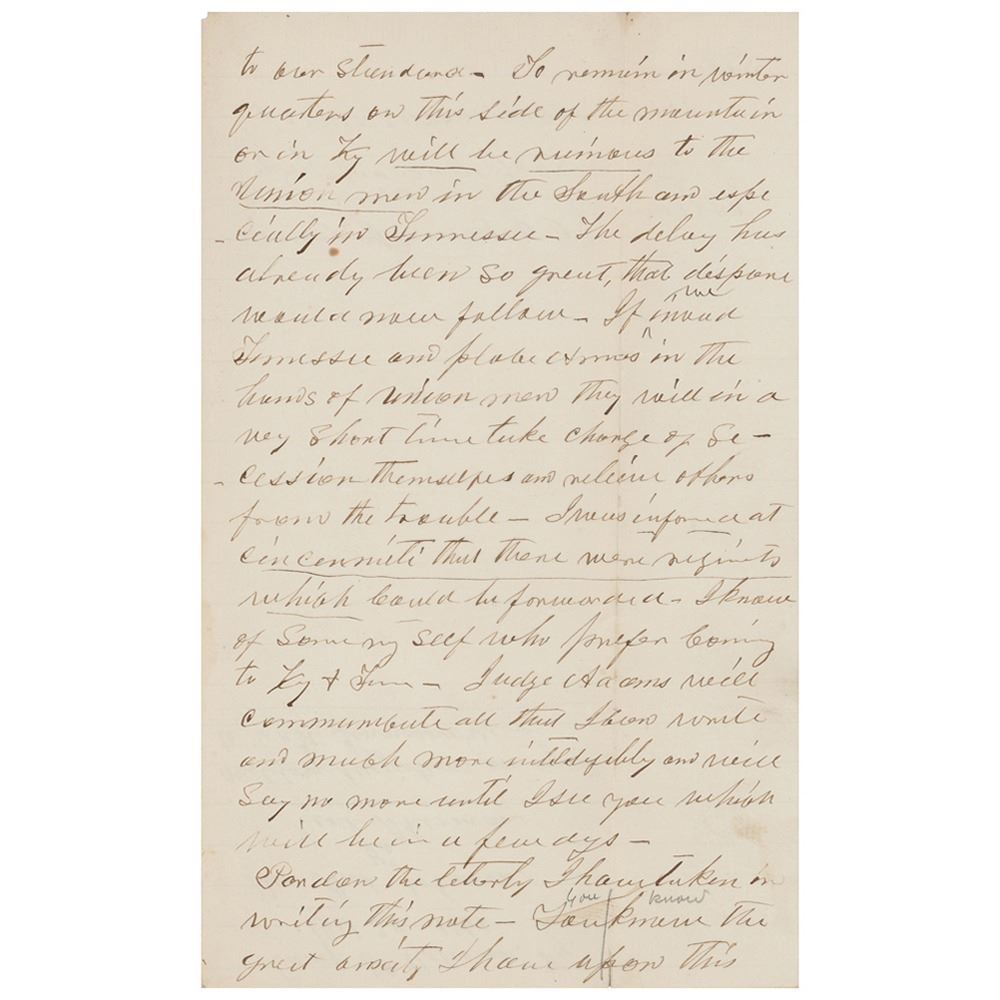 to our Standard - To remain in winter
quarters on this side of the mountain
or in Ky will be ruinous to the
Union men in the South and espe
- cially in Tennessee - The delay has
already been so great, that despare
would now follow - If we invad
Tennessee and place Arms in the
hands of Union men they will in a
vey Short time take charge of Se -
- cession themselves and relieve others
from the trouble - I was informed at
Cincenniti that there were regimts
which could be forwarded - I know
of Some my self who prefer coming
to Ky & Tenn - Judge Adams will
communicate all that I can write
and much more intelegibly and will
Say no more until I see you which
will be in a few days -
Pardon the leberty I have taken in
writing this note - You know the
you know
great anxity I have upon this